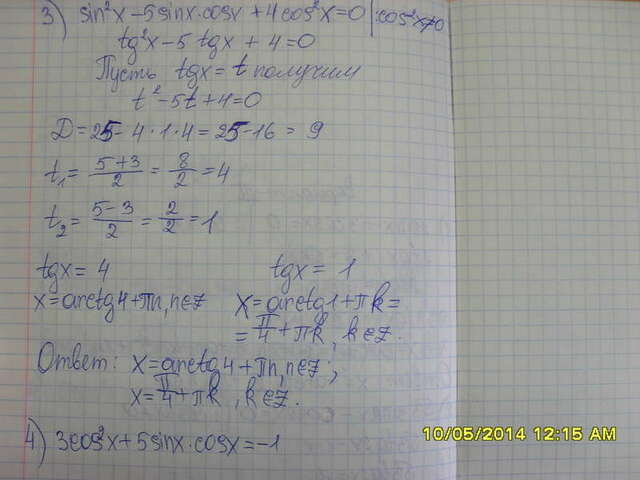 3) sin²x - 5sinx·cosx + 4cos²x = 0 | :cos²x≠0
tg²x - 5 tgx + 4 = 0
Пусть tgx = t получим
t² - 5t + 4 = 0
D = 25 - 4·1·4 = 25 - 16 = 9
t₁ = (5+3)/2 = 8/2 = 4
t₂ = (5-3)/2 = 2/2 = 1
tgx = 4 tgx = 1
x = arctg4 + πn, n∈Z x = arctg1 + πk =
= π/4 + πk, k∈Z.
Ответ: x = arctg4 + πn, n∈Z;
x = π/4 + πk, k∈Z.
4) 3cos²x + 5sinx·cosx = -1
10/05/2014 12:15 AM